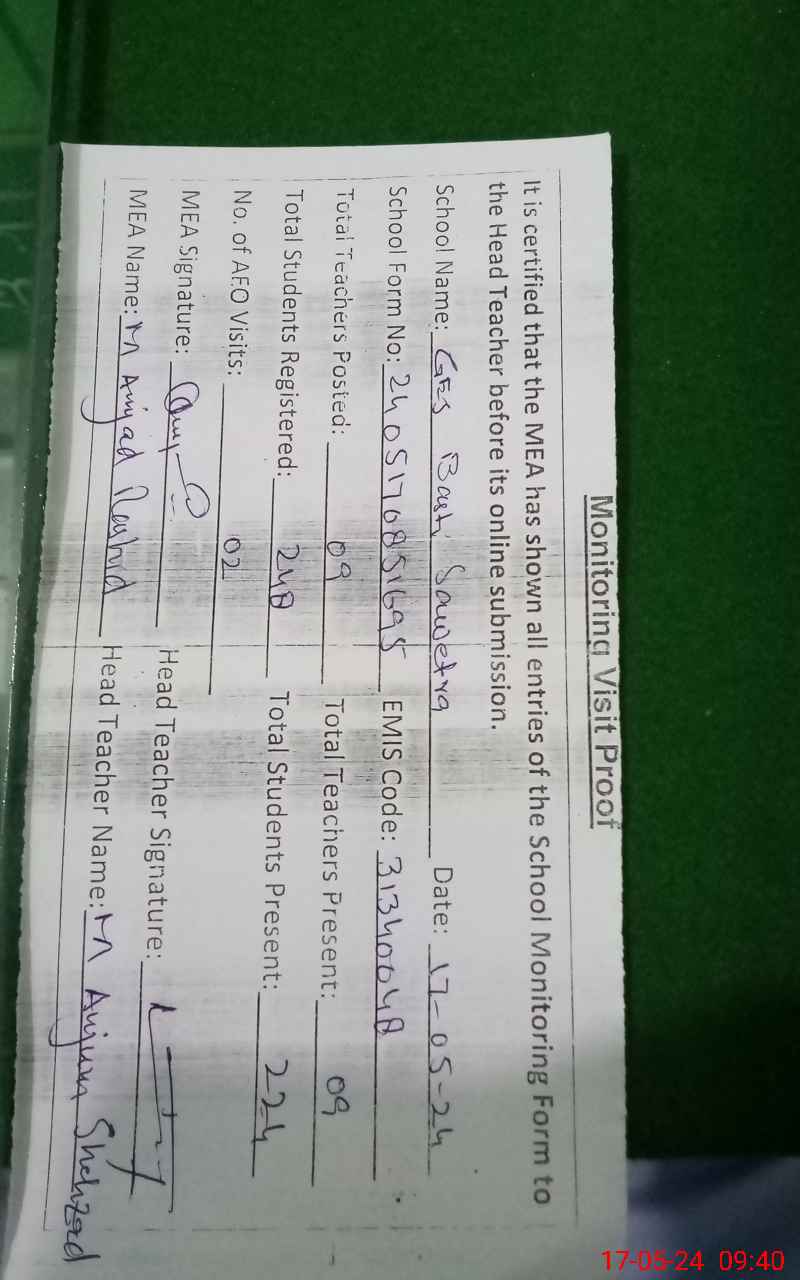 Monitoring Visit Proof
It is certified that the MEA has shown all entries of the School Monitoring Form to
the Head Teacher before its online submission.
School Name: GES Basti Sawetra Date: 17-05-24
School Form No: 2405170851695 EMIS Code: 31340048
Total Teachers Posted: 09 Total Teachers Present: 09
Total Students Registered: 248 Total Students Present: 224
No. of AEO Visits: 02
MEA Signature: Head Teacher Signature:
MEA Name: M Amjad Rashid Head Teacher Name: M Anjum Shehzad
17-05-24 09:40